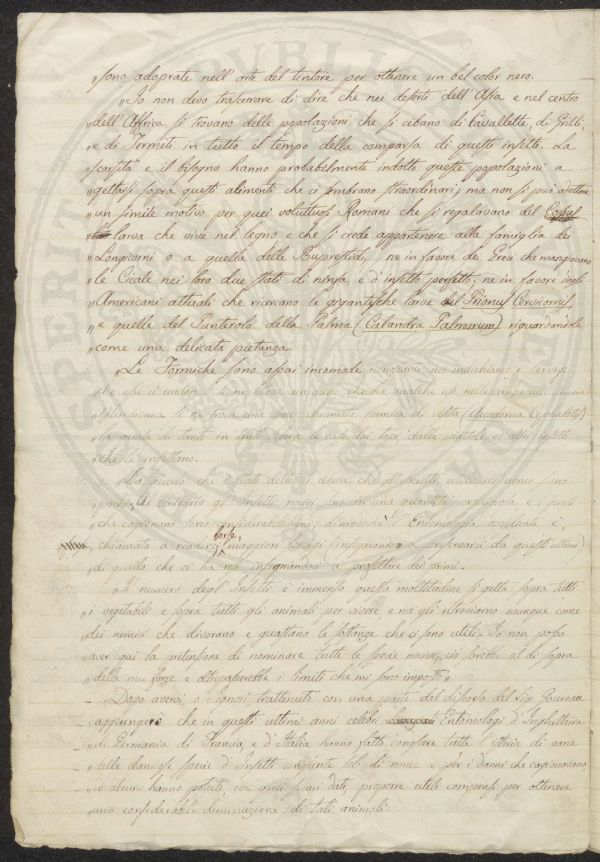 „sono adoprate nell'arte del tintore per ottenere un bel color nero.
„Io non devo trascurare di dire che nei deserti dell'Asia e nel centro
„dell'Affrica si trovano delle popolazioni che si cibano di Cavallette, di Grilli,
„e di Termiti in tutto il tempo della comparsa di questi insetti. La
„scarsità e il bisogno hanno probabilmente indotto queste popolazioni a
„gettarsi sopra questi alimenti che ci sembrano straordinari; ma non si può addurre
„un simile motivo per quei voluttuosi Romani che si regalavano del Cossus
„larva che vive nel legno e che si crede appartenere alla famiglia dei
„Longicorni o a quella delle Buprestidi, ne in favore dei Greci che mangiavano
„le Cicale nei loro due stati di ninfa, e d'insetto perfetto, ne in favore degli
„Americani attuali che ricercano le gigantesche larve del Prionus Cervicornis,
„e quelle del Punterolo della Palma (Calandra Palmarum) riguardandole
„come una delicata pietanza.
„Le Formiche sono assai incomode
„che essi ci rendono. se ne estrae un acido che ha qualche uso nelle arti e nel
se ne trova una specie chiamata formica di visita
„la quale di tanto in tanto
„che le infestano.
„Da quanto che è stato detto si rileva che gl'Insetti utili all'uomo sono
„pochi, al contrario gl'Insetti nocivi sono in una quantità e i guasti
„che cagionano sono l'Entomologia applicata è,
„chiamata a renderci forse maggiori servigi (insegnandoci a preservarci da questi ultimi)
„di quello che ci ha resi insegnandoci a profittare dei primi.
„Il numero degl'Insetti è immenso questa moltitudine si getta sopra tutti
„i vegetabili e sopra tutti gli animali per vivere, e noi gli ritroviamo ovunque come
„dei nemici che divorano e guastano le sostanze che ci sono utili. Io non posso
„aver qui la pretensione di nominare tutte le specie nocive, ciò sarebbe al di sopra
„delle mie forze e oltrepasserebbe i limiti che mi sono imposto.„
„Dopo avervi, o Signori, trattenuto con una parte del discorso del Sig. Goureau
aggiungerò che in questi ultimi anni celebri Entomologi d'Inghilterra
„di Germania di Francia, e d'Italia hanno fatto conoscere tutta l'istoria di varie
„delle dannose specie d'Insetti conosciute sol di nome e per i danni che cagionavano
„e alcuni hanno potuto, con quei sicuri dati, proporre utili compensi per ottenere
una considerabile diminuzione di tali animali.